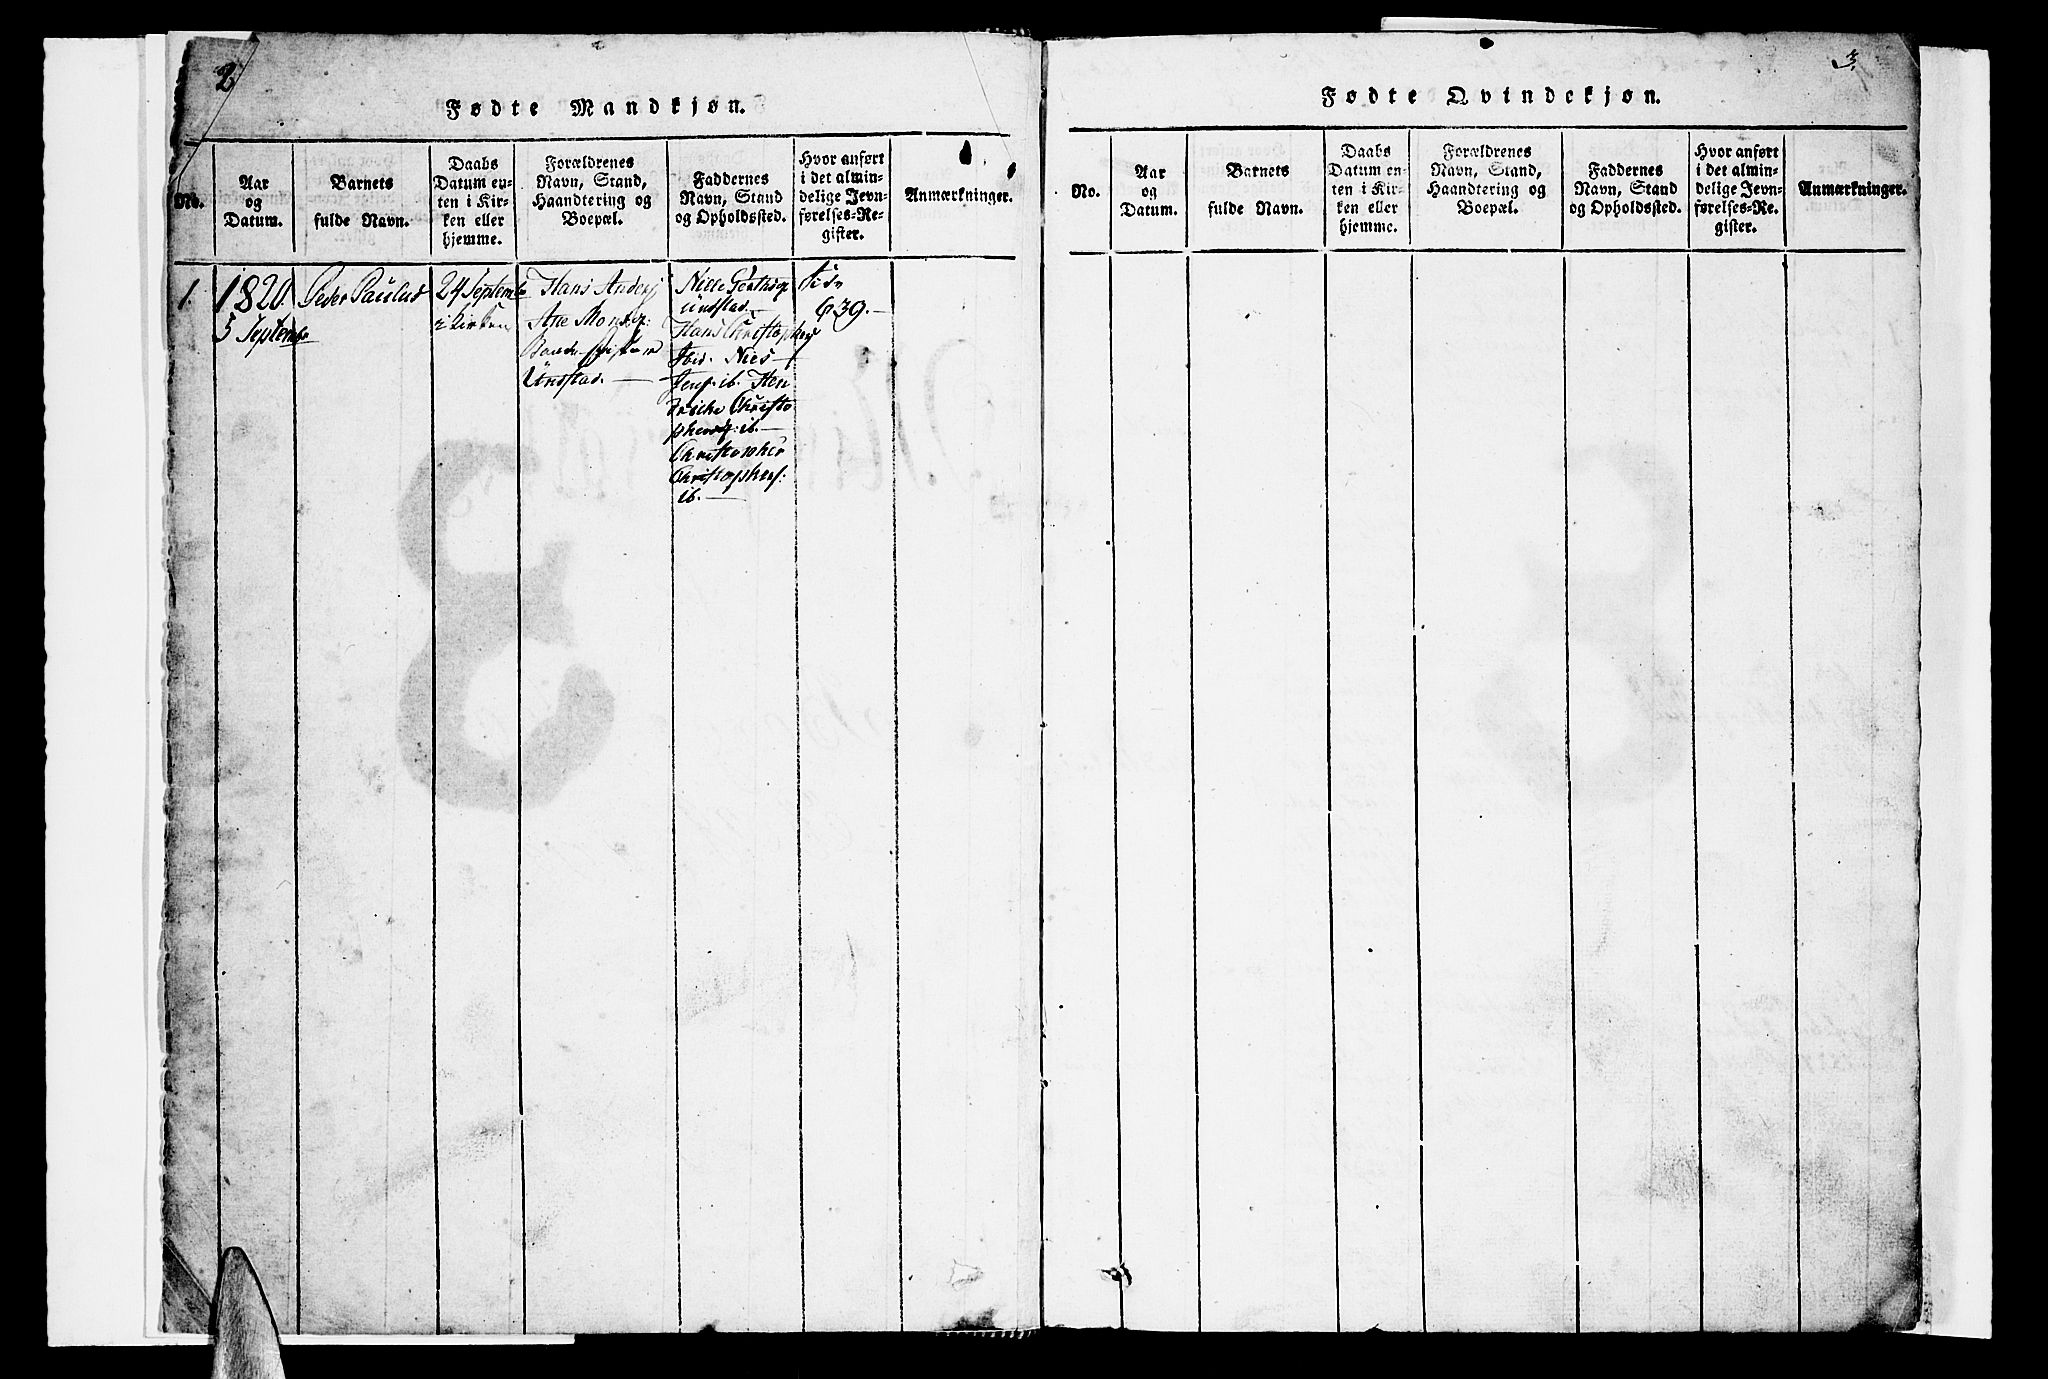 2
Fødte Mandkjøn.
No.
Aar
og
Datum.
Barnets
fulde Navn.
Daabs
Datum en-
ten i Kir-
ken eller
hjemme.
Forældrenes
Navn, Stand,
Haandtering og
Boepæl.
Faddernes
Navn, Stand
og Opholdssted.
Hvor anført
i det almin-
delige Jevn-
førelses-Re-
gister.
Anmærkninger.
1.
1820.
5 Septembr
Peder Paulus
24 Septembr
i Kirken
Hans Anders
Ane
Undstad.
Niels
Undstad.
Hans Christophers
Ibid. Niels
Jens. ib. Hen
Christo
phers: ib.
Christopher
Christophers:
ib.
Side
639.
3.
Fødte Qvindekjøn.
No.
Aar
og
Datum.
Barnets
fulde Navn.
Daabs
Datum en-
ten i Kir-
ken eller
hjemme.
Forældrenes
Navn, Stand,
Haandtering og
Boepæl.
Faddernes
Navn, Stand
og Opholdssted.
Hvor anført
i det almin-
delige Jevn-
førelses-Re-
gister.
Anmærkninger.